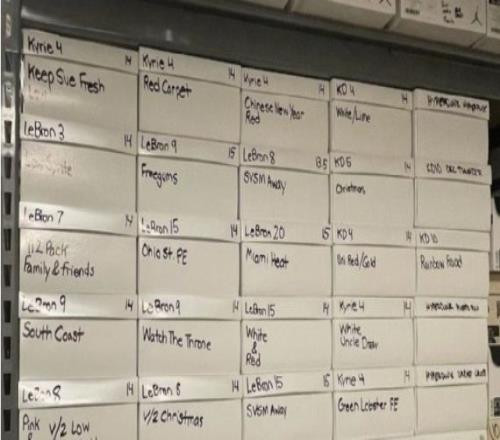 Kyrie 4 14
Kyrie 4 14
Kyrie 4 14
KD 4 14
Keep Sue Fresh
Red Carpet
Chinese New Year
Red
White/Lime
LeBron 3 14
LeBron 9 15
LeBron 8
KD5 14
Freegums
SVSM Away
Christmas
LeBron 7 14
LeBron 15 14
LeBron 20 15
KD4 14
KD 10
112 Pack
Family & friends
Ohio St. PE
Miami Heat
Uni Red/Gold
Rainbow Food
LeBron 9 14
LeBron 9 14
LeBron 15 14
Kyrie 4 14
South Coast
Watch The Throne
White
&
Red
White
Uncle Drew
LeBron 8 14
LeBron 8 14
LeBron 15 15
Kyrie 4 14
Pink V/2 Low
V/2 Christmas
SVSM Away
Green Lobster PE